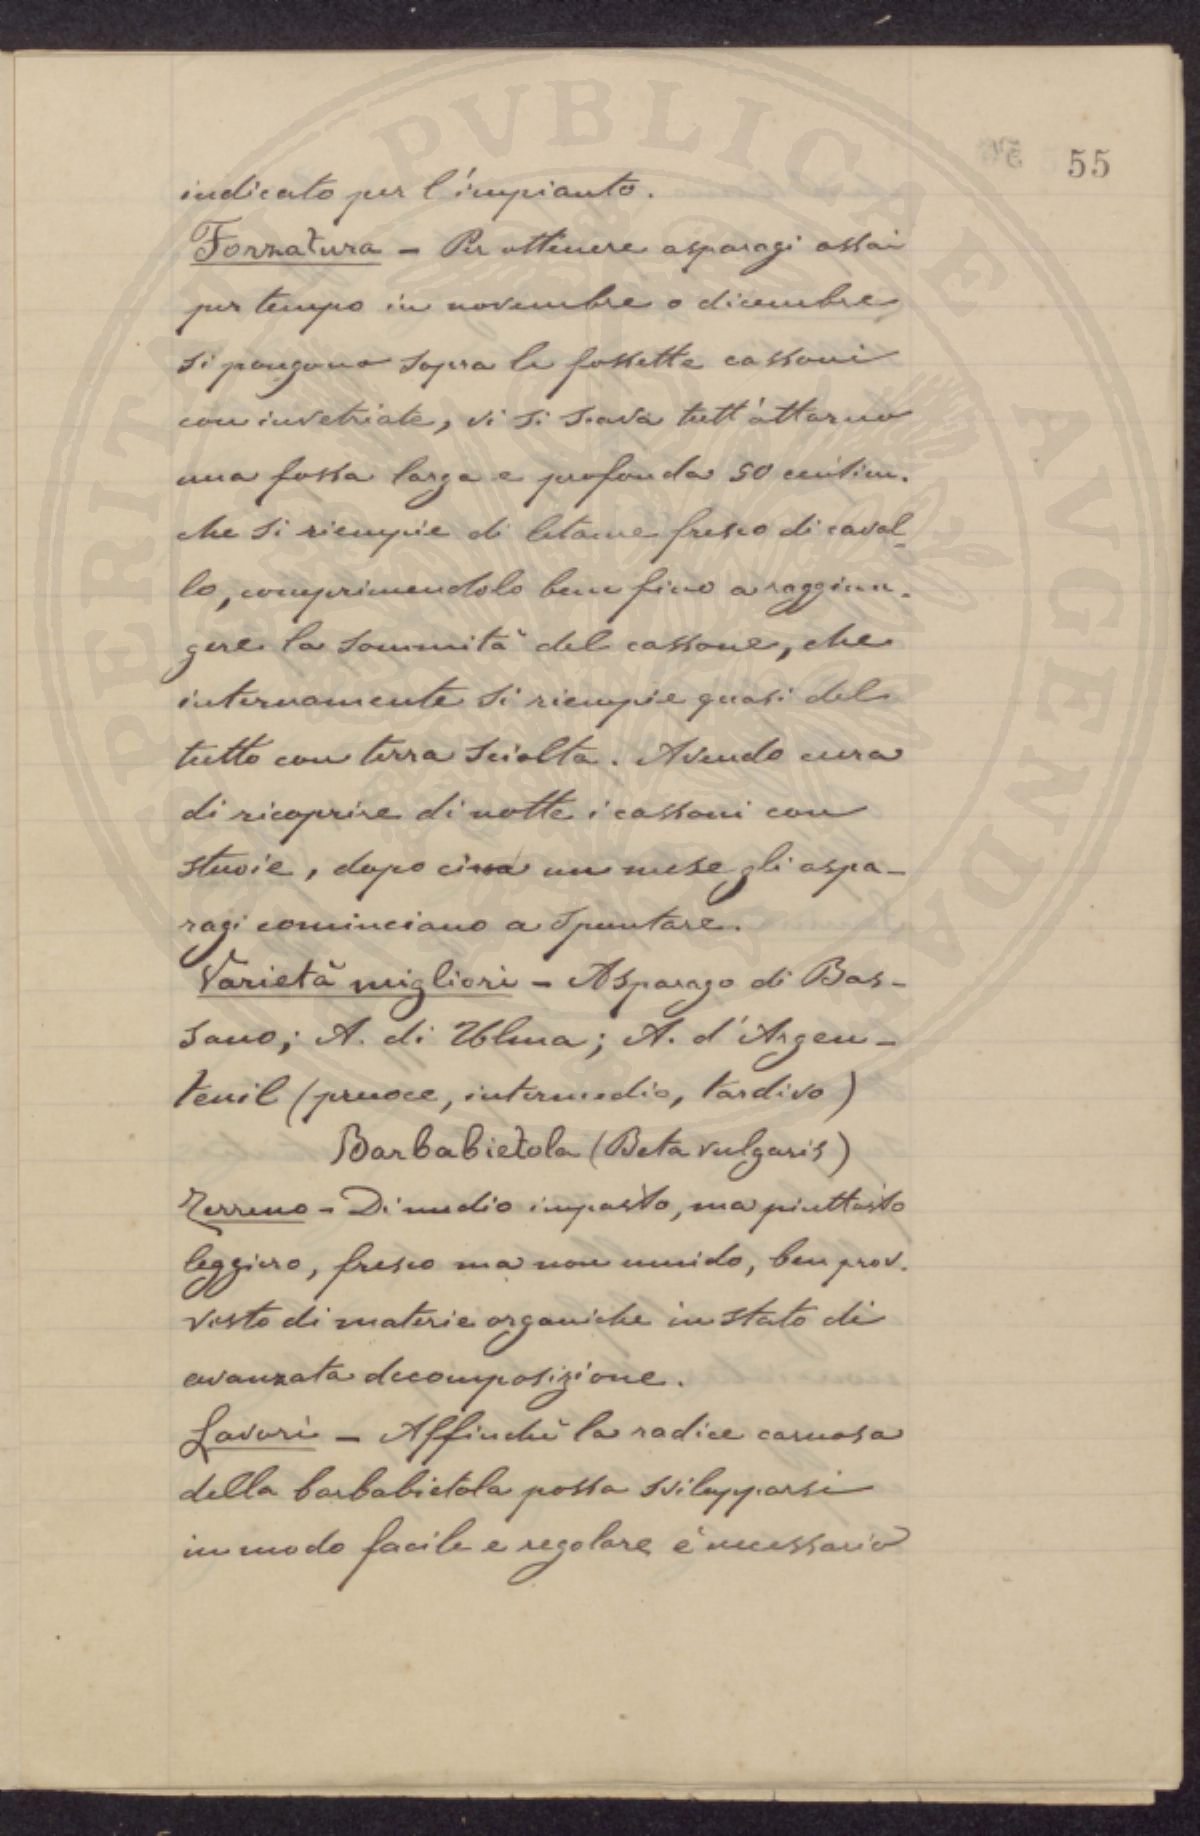 55
indicato per l'impianto.
Forzatura - Per ottenere asparagi assai
per tempo in novembre o dicembre
si pongono sopra le fossette cassoni
con invetriate, vi si scava tutt'attorno
una fossa larga e profonda 50 centim.
che si riempie di letame fresco di caval-
lo, comprimendolo bene fino a raggiun-
gere la sommità del cassone, che
internamente si riempie quasi del
tutto con terra sciolta. Avendo cura
di ricoprire di notte i cassoni con
stuoie, dopo circa un mese gli aspa-
ragi cominciano a spuntare.
Varietà migliori - Asparago di Bas-
sano; A. di Ulma; A. d'Argen-
teuil (precoce, intermedio, tardivo)
Barbabietola (Beta vulgaris)
Terreno - Di medio impasto, ma piuttosto
leggiero, fresco ma non umido, ben prov-
visto di materie organiche in stato di
avanzata decomposizione.
Lavori - Affinchè la radice carnosa
della barbabietola possa svilupparsi
in modo facile e regolare è necessario
SPERITATI PVBLICAE AVGENDAE